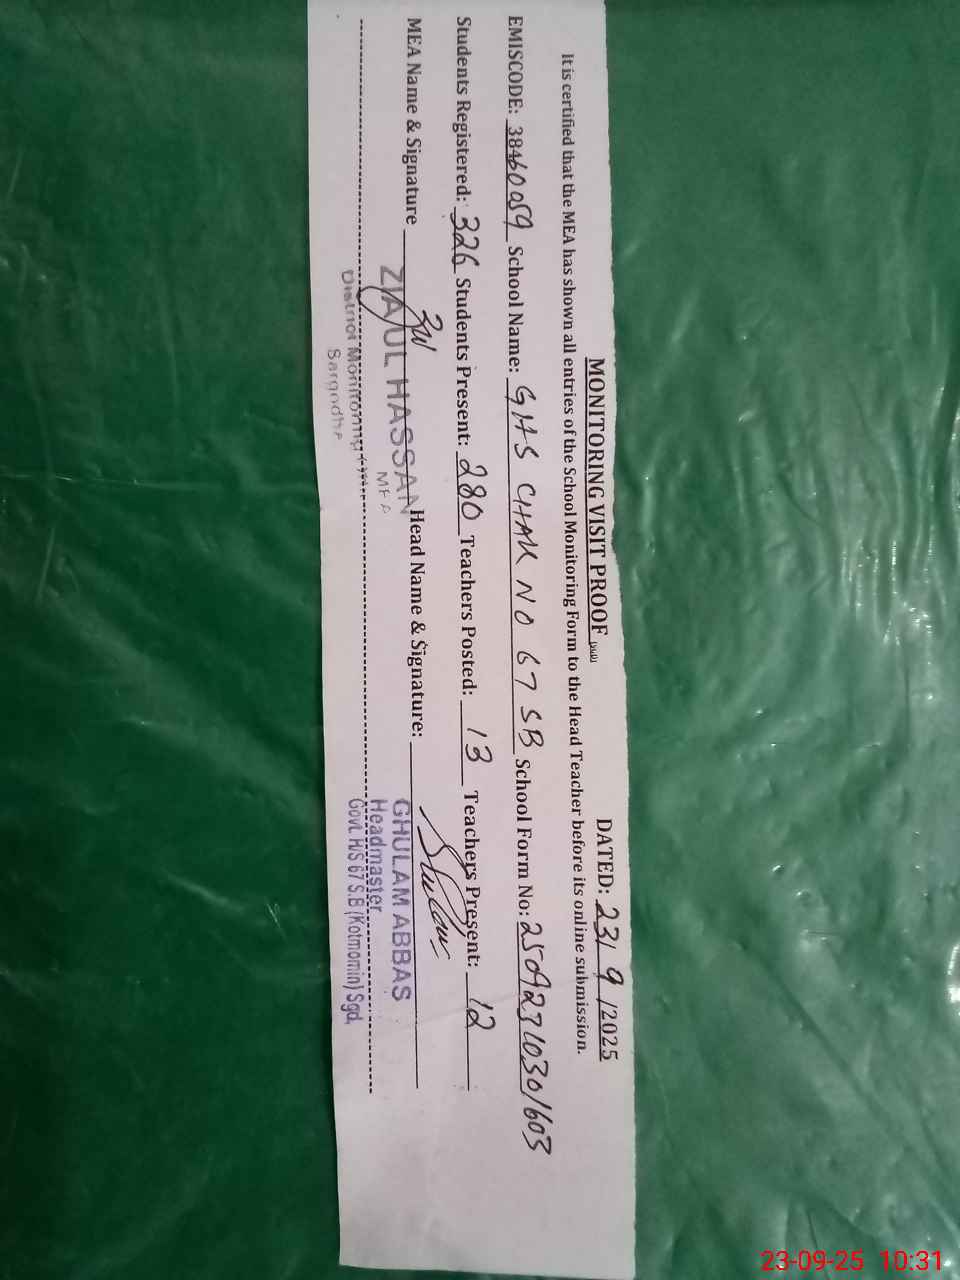 MONITORING VISIT PROOF DATED: 23/ 9 /2025
It is certified that the MEA has shown all entries of the School Monitoring Form to the Head Teacher before its online submission.
EMISCODE: 38460059 School Name: GHS CHAK NO 67 SB School Form No:
Students Registered: 326 Students Present: 280 Teachers Posted: 13 Teachers Present: 12
MEA Name & Signature Head Name & Signature:
ZIA UL HASSAN
MEA
District Monitoring
Sargodha
GHULAM ABBAS
Headmaster
Govt. H/S 67 S.B (Kotmomin) Sgd.
23-09-25 10:31